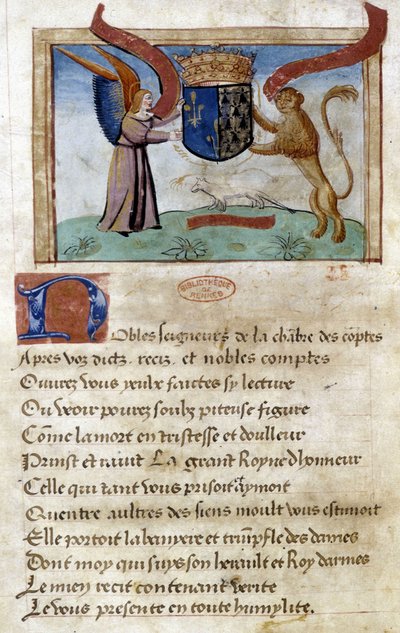 BIBLIOTHEQUE
DE
RENNES
Nobles seigneurs de la chãbre des cõptes
Apres voz dictz, reciz, et nobles comptes
Ouvrez vous yeulx faictes sy lecture
Ou veoir pourez soubz piteuse figure
Cõme la mort en tristesse et doulleur
Prinst et ravit La grant Royne dhonneur
Celle qui tant vous prisoit aymoit
Quentre aultres des siens moult vous estimoit
Elle portoit la banyere et triũmfle des dames
Dont moy qui suys son herault et Roy darmes
Le mien recit contenant verite
Le vous presente en toute humylite.